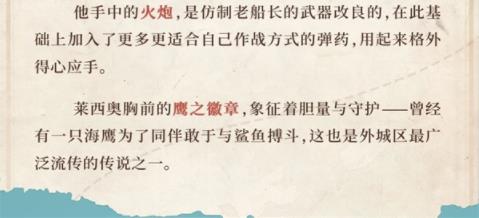 他手中的火炮，是仿制老船长的武器改良的，在此基
础上加入了更多更适合自己作战方式的弹药，用起来格外
得心应手。
莱西奥胸前的鹰之徽章，象征着胆量与守护——曾经
有一只海鹰为了同伴敢于与鲨鱼搏斗，这也是外城区最广
泛流传的传说之一。